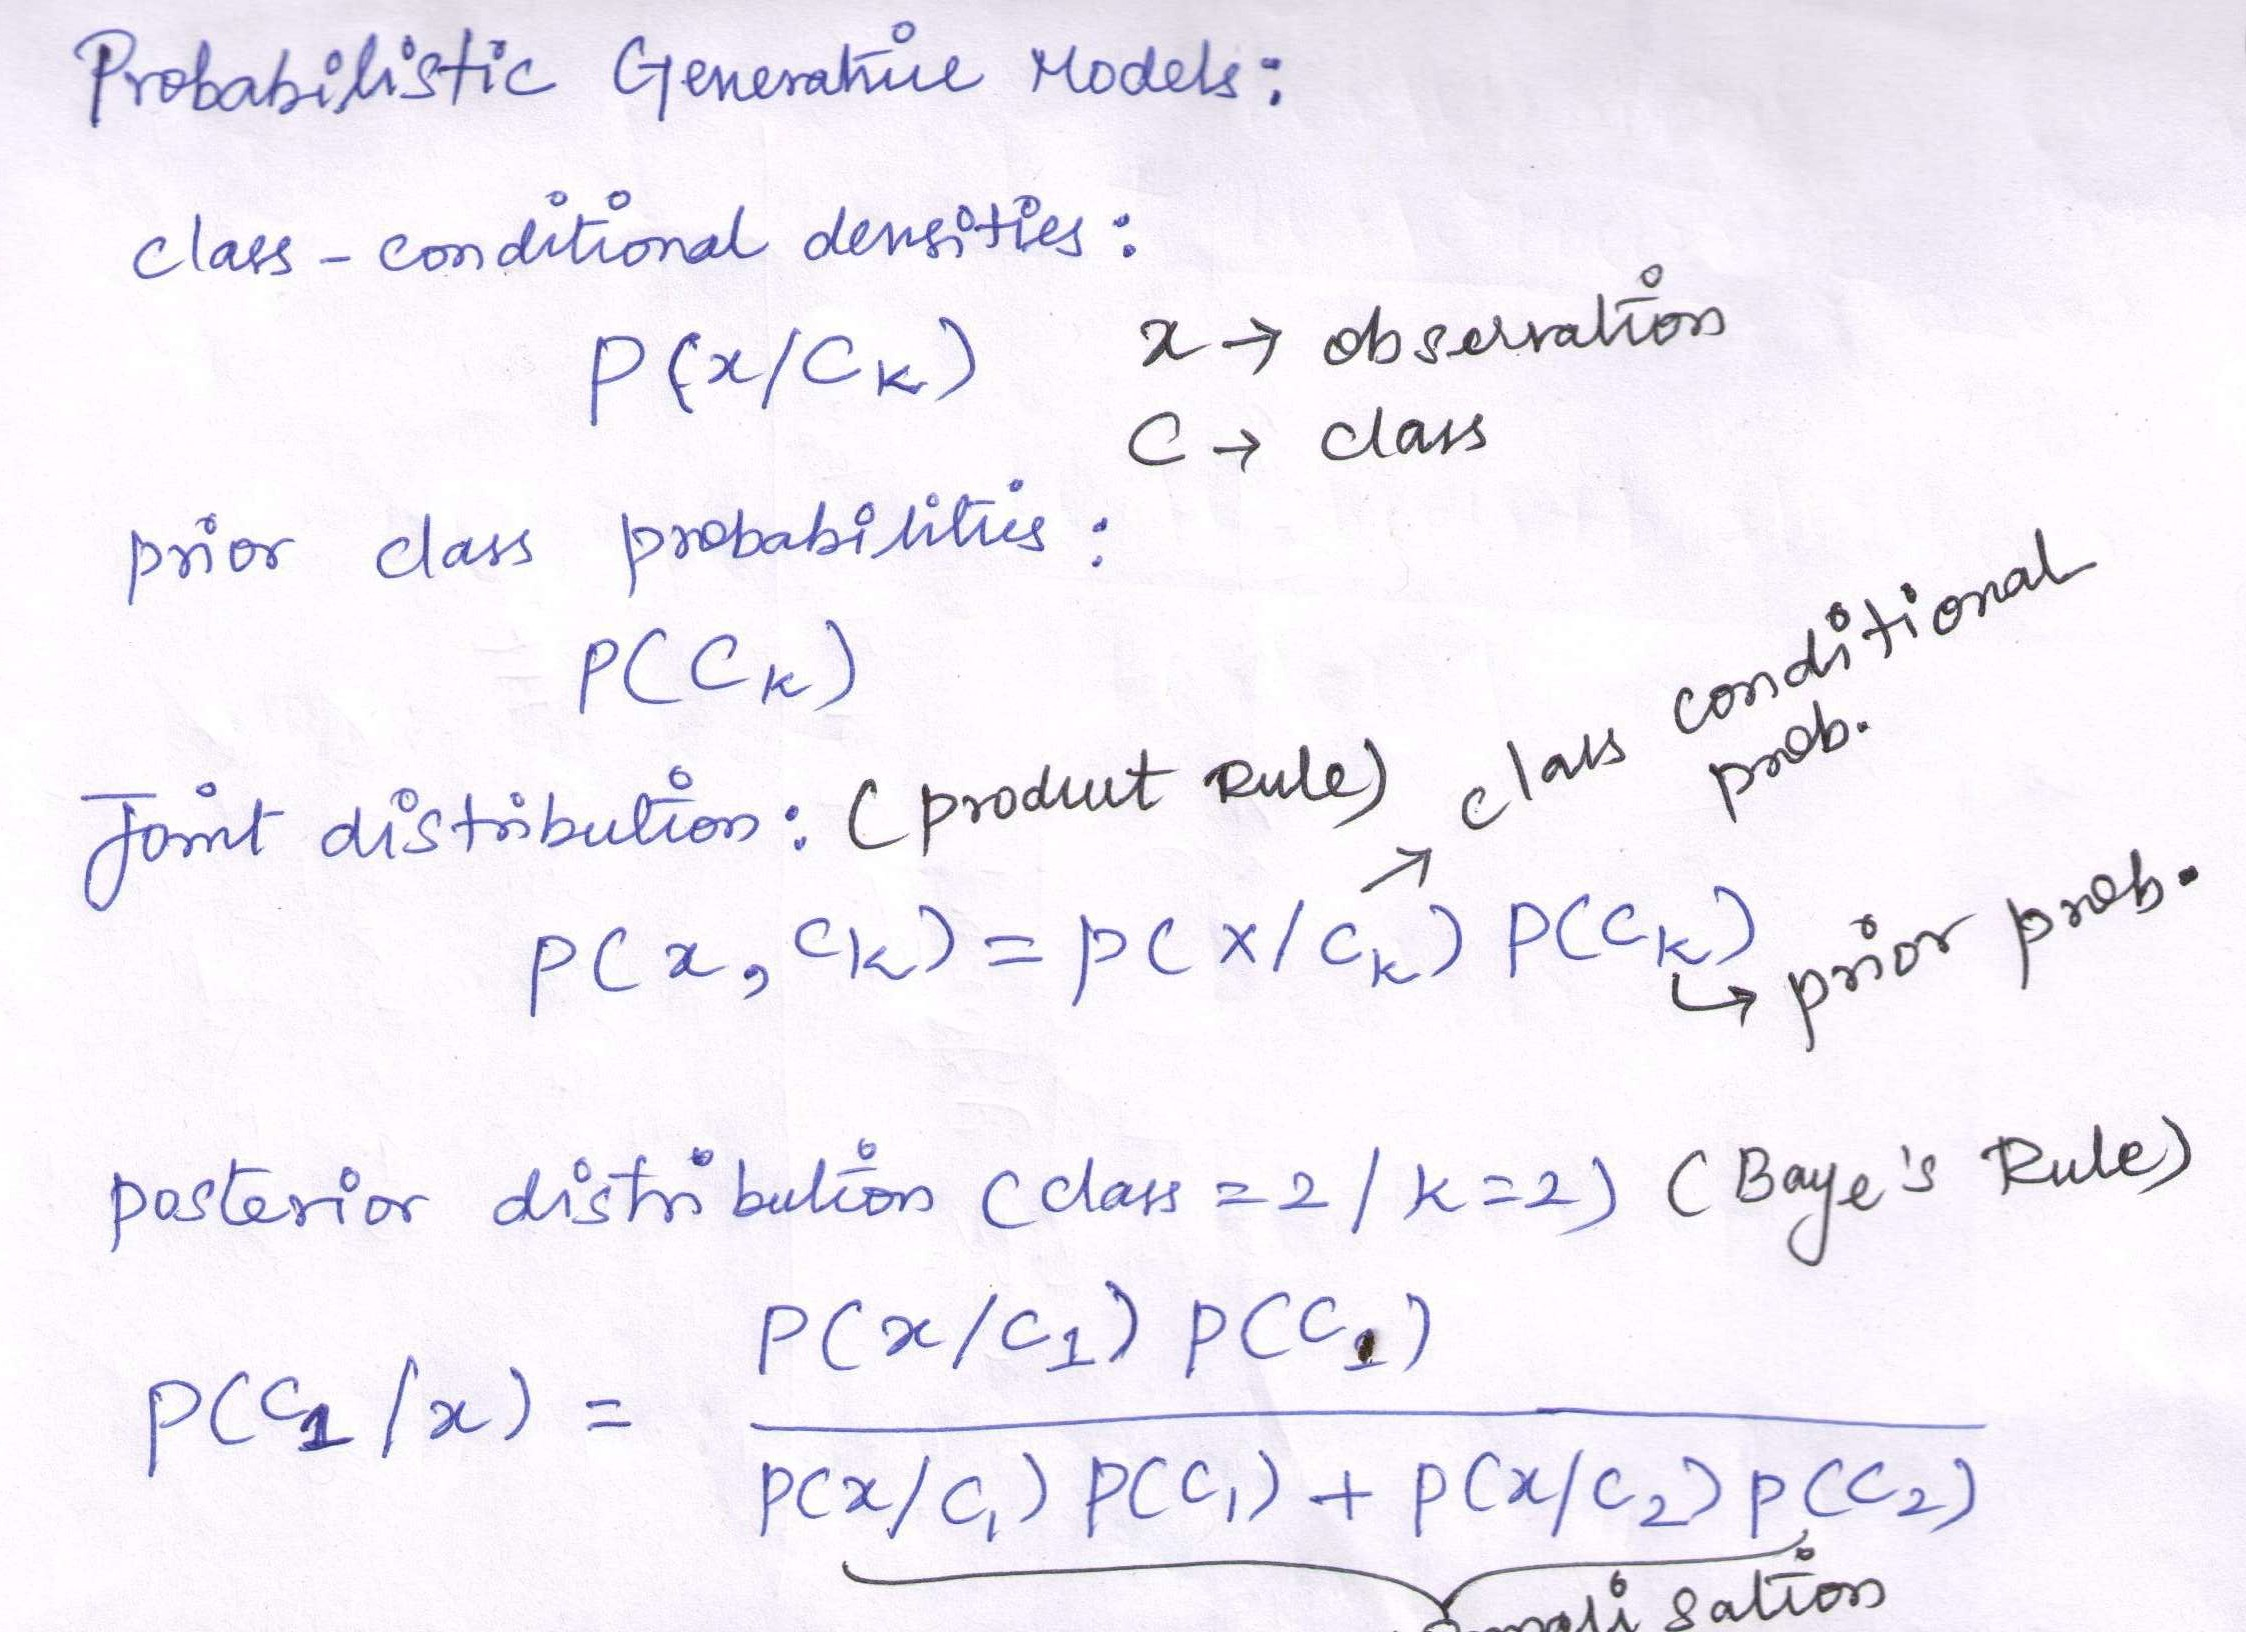 Probabilistic Generative Models:
class-conditional densities:
P(x/Ck)
x → observation
C → class
prior class probabilities:
P(Ck)
Joint distribution: (product Rule)
class conditional
prob.
p(x, Ck) = p(x/Ck) P(Ck)
↳ prior prob.
posterior distribution (class = 2 / k=2) (Baye's Rule)
P(x/C1) p(C1)
p(C1/x) =
p(x/C1) p(C1) + p(x/C2) p(C2)